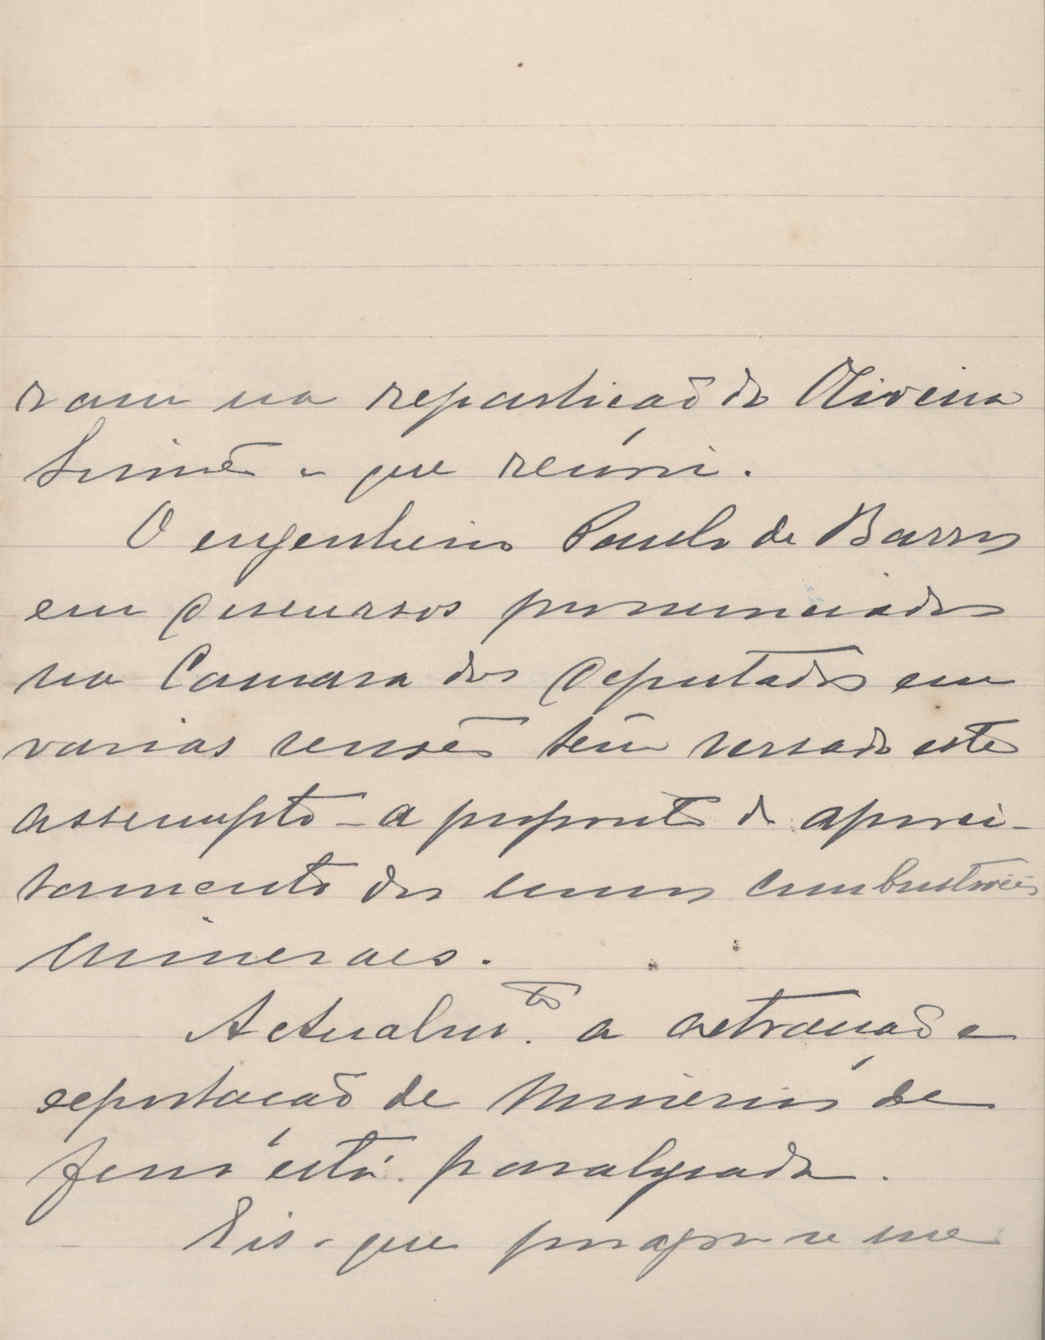 ram na repartição do Oliveira
Simões o que reuni.
O engenheiro Paulo de Barros
em discursos pronunciados
na Camara dos Deputados em
varias sessões tem versado este
assumpto - a proposito de aprovei-
tamento dos combustiveis
mineraes.
Actualm.te a extracção e
exportação de minerios de
ferro está paralysada.
Eis o que por agora se me